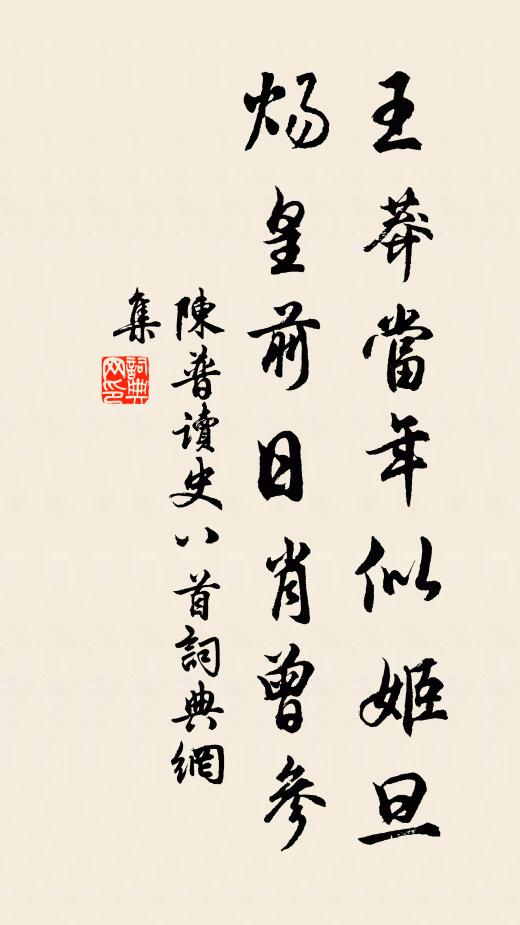 王莽當年似姬旦
煬皇前日肖曾參
陳普讀史八首詞典網
集
詞典
网印